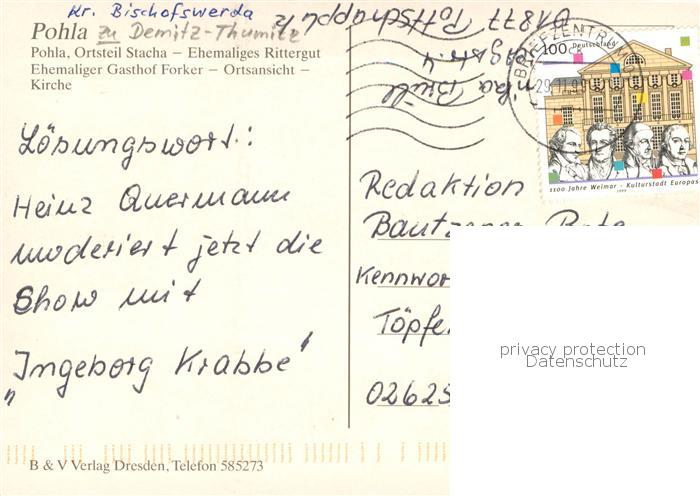 Kr. Bischofswerda
Pohla zu Demitz-Thumitz
Pohla, Ortsteil Stacha – Ehemaliges Rittergut
Ehemaliger Gasthof Forker – Ortsansicht –
Kirche
Lösungswort:
Heinz Quermann
moderiert jetzt die
Show mit
"Ingeborg Krabbe"
B & V Verlag Dresden, Telefon 585273
01877
BRIEFZENTRUM
29.11.99
100 Deutschland
1100 Jahre Weimar - Kulturstadt Europas
1999
Redaktion
Bautzener Bote
Kennwor
Töpfe
02625
privacy protection
Datenschutz